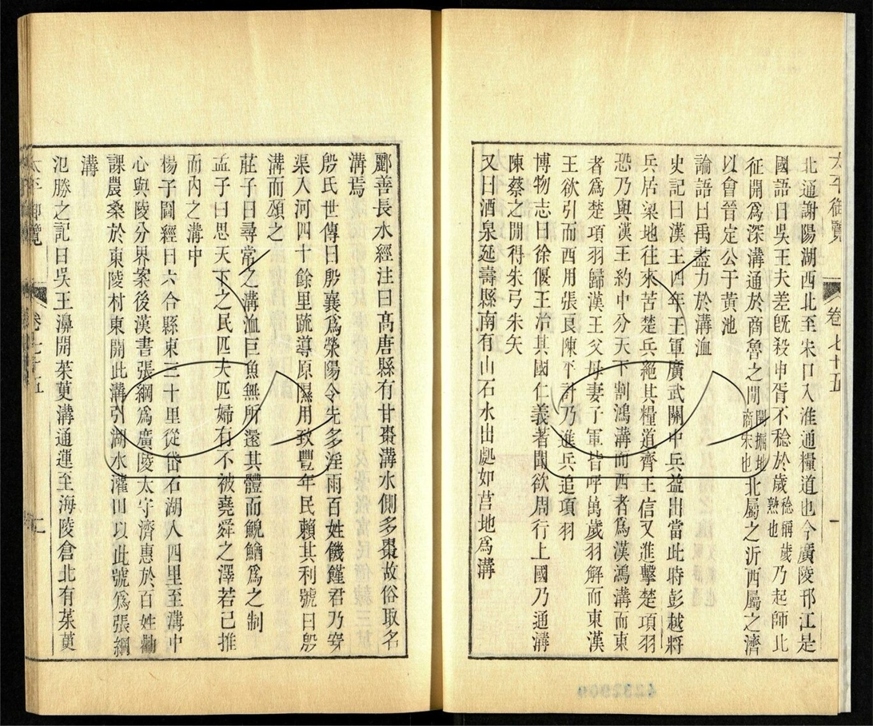 太平御覽 卷七十五 一
北通謝陽湖西北至宋口入淮通糧道也今廣陵邗江是
國語曰吳王夫差旣殺申胥不稔於歲稔稱歲熟也乃起師北
征開爲深溝通於商魯之閒商宋也北屬之沂西屬之濟
以會晉定公于黃池
論語曰禹盡力於溝洫
史記曰漢王四年王軍廣武關中兵益出當此時彭越將
兵居梁地往來苦楚兵絕其糧道齊王信又進擊楚項羽
恐乃與漢王約中分天下割鴻溝而西者爲漢鴻溝而東
者爲楚項羽歸漢王父母妻子軍皆呼萬歲羽解而東漢
王欲引而西用張良陳平計乃進兵追項羽
博物志曰徐偃王治其國仁義著聞欲周行上國乃通溝
陳蔡之閒得朱弓朱矢
又曰酒泉延壽縣南有山石水出處如莒地爲溝
酈善長水經注曰高唐縣有甘棗溝水側多棗故俗取名
溝焉
殷氏世傳曰殷襄爲滎陽令先多淫雨百姓饑饉君乃穿
渠入河四十餘里疏導原隰用致豐年民賴其利號曰殷
溝而頌之
莊子曰尋常之溝洫巨魚無所還其體而鯢鰌爲之制
孟子曰思天下之民匹夫匹婦有不被堯舜之澤若己推
而內之溝中
楊子圖經曰六合縣東三十里從岱石湖入四里至溝中
心與陵分界案後漢書張綱爲廣陵太守濟惠於百姓勸
課農桑於東陵村東開此溝引湖水灌田以此號爲張綱
溝
氾勝之記曰吳王濞開茱萸溝通運至海陵倉北有茱萸
太平御覽 卷七十五 二